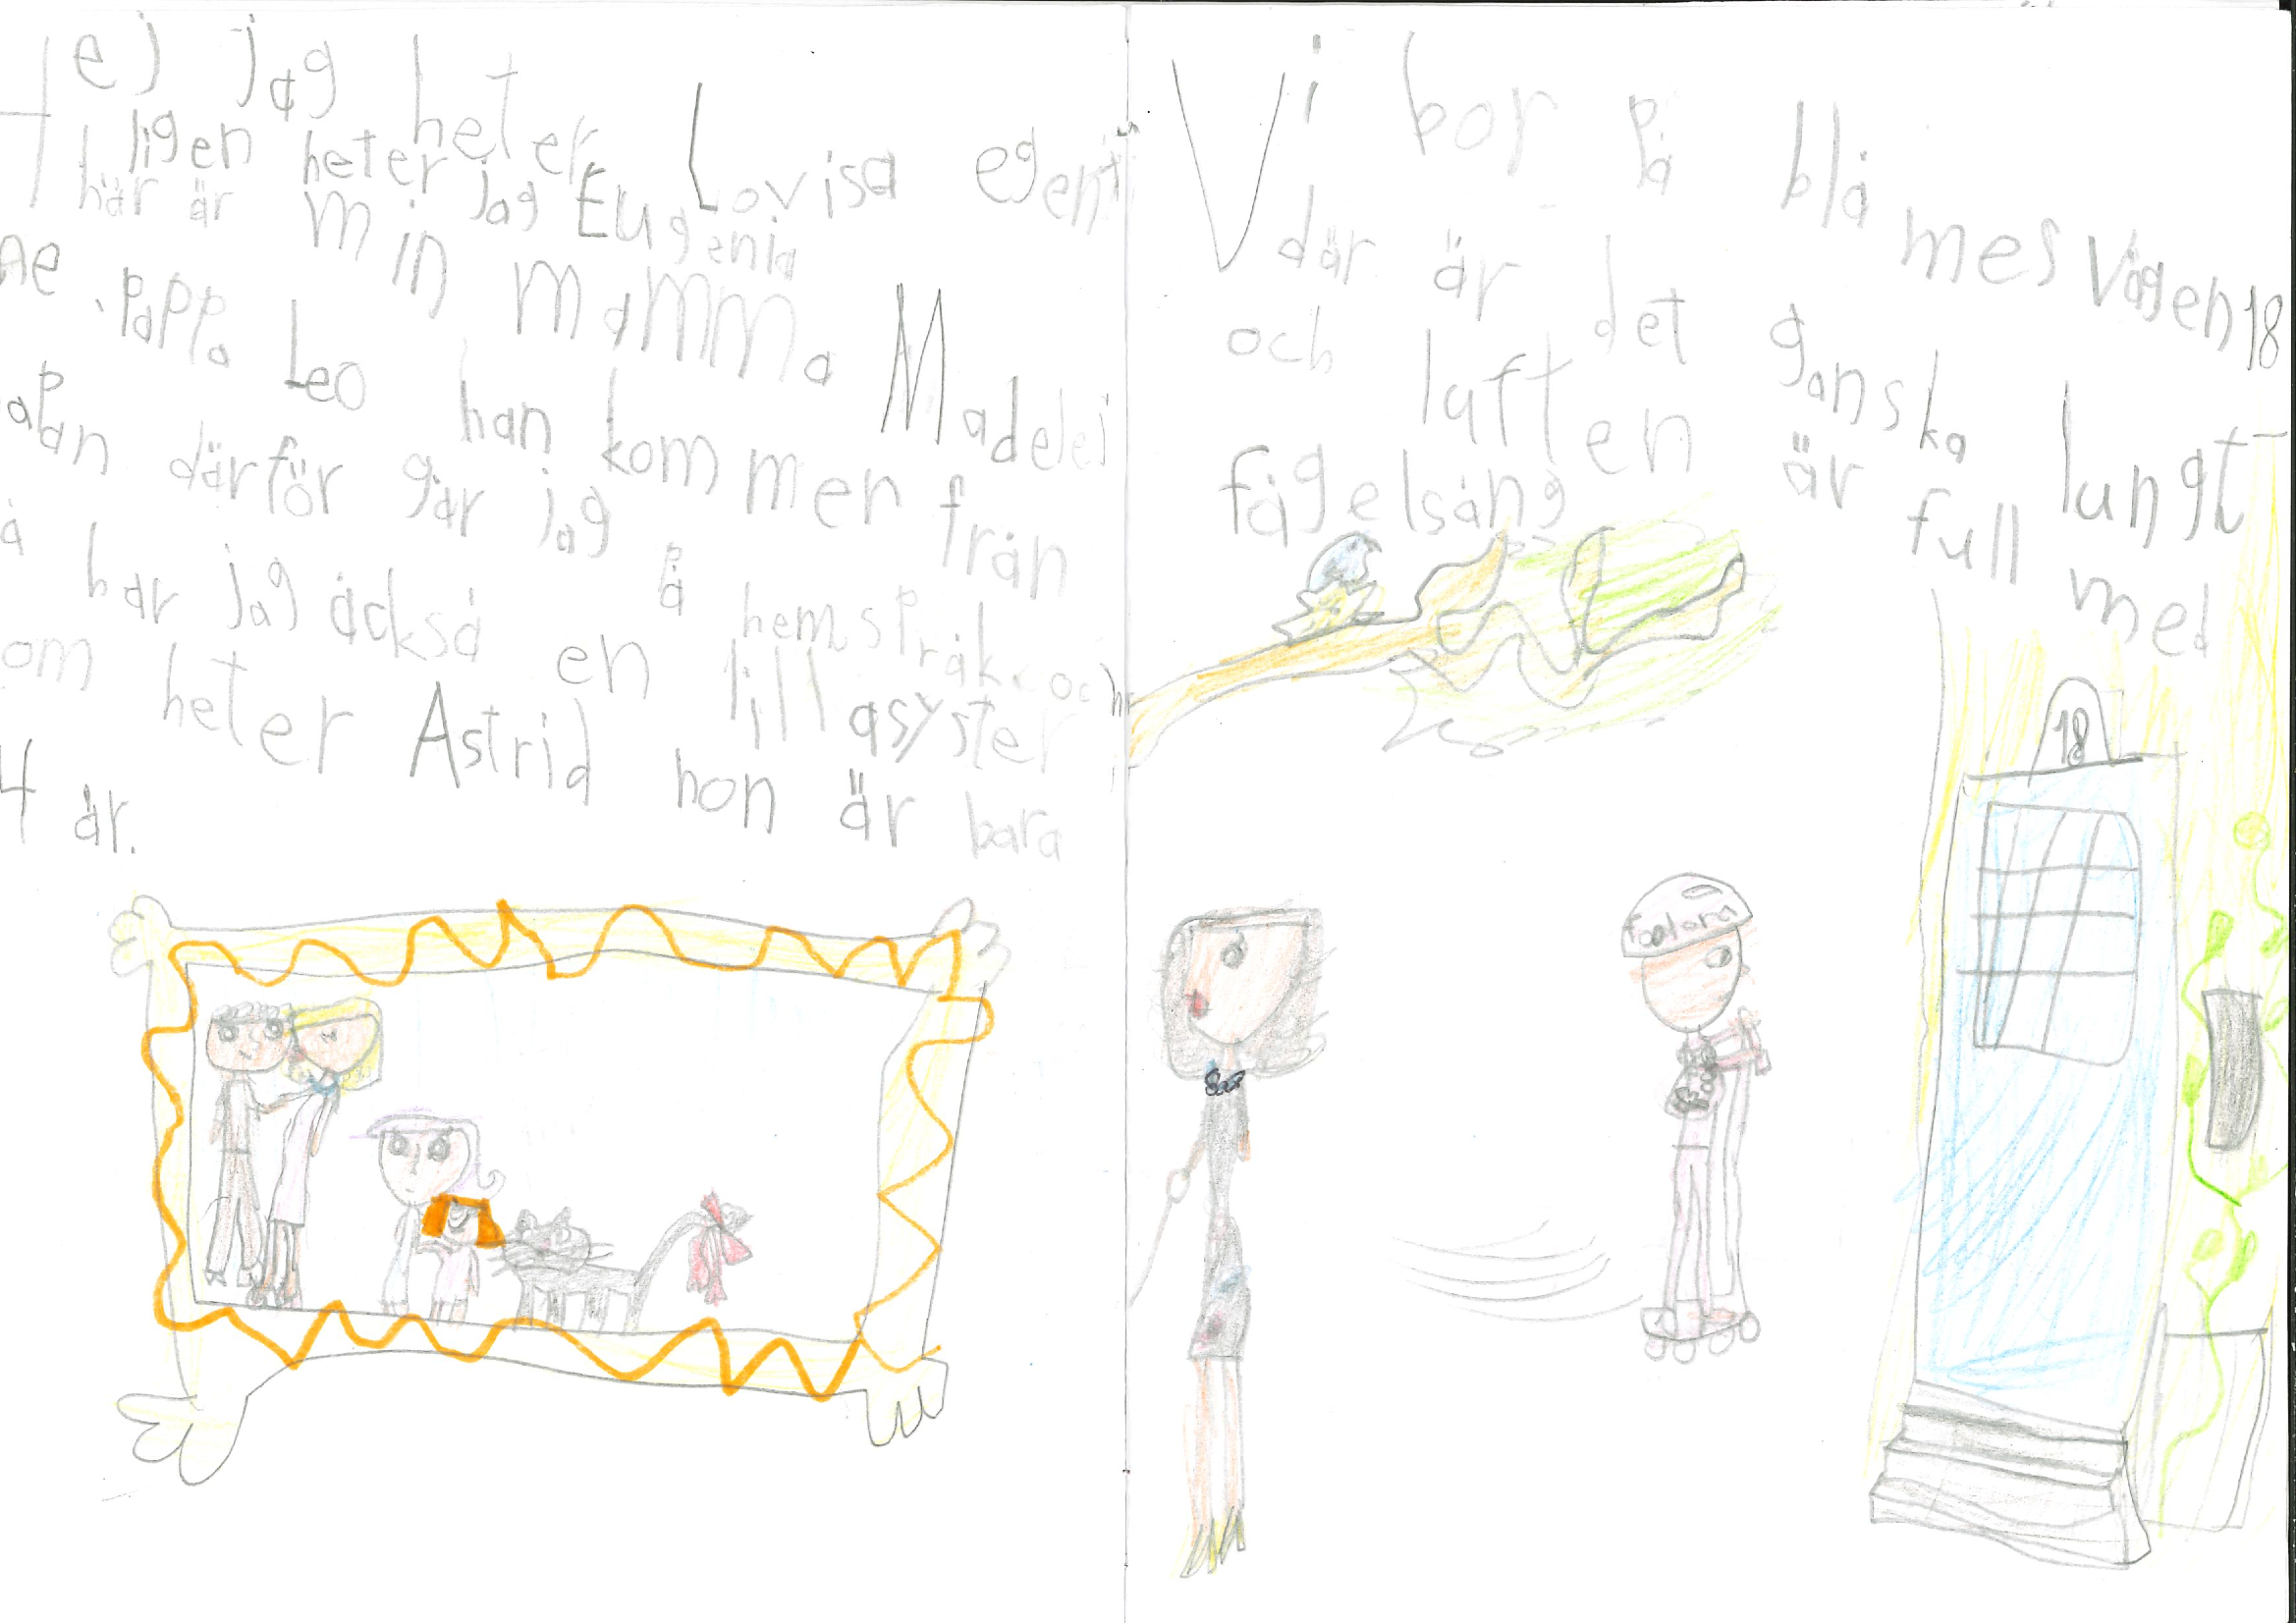 Hej jag heter Lovisa egent
ligen heter jag Eugenia
här är min mamma Madelei
ne. pappa Leo han kommer från
apan därför går jag på hemspråk. och
å har jag åckså en lillasyster
om heter Astrid hon är bara
4 år.
Vi bor på blå mes vägen 18
där är det ganska lungt
och luften är full med
fågelsång
18